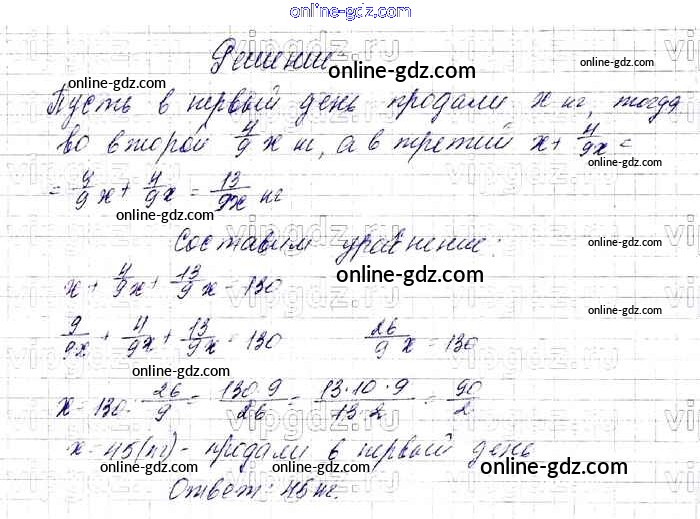 online-gdz.com
Решение
online-gdz.com online-gdz.com online-gdz.com
Пусть в первый день продали x кг, тогда
во второй 4/9 x кг, а в третий x + 4/9x =
online-gdz.com
= 9/9 x + 4/9 x = 13/9x кг
online-gdz.com
Составим уравнение:
online-gdz.com
x + 4/9 x + 13/9 x = 130
online-gdz.com
9/9x + 4/9x + 13/9x = 130 26/9 x = 130
x = 130 : 26/9 = 130·9/26 = 13·10·9/13·2 = 90/2
x = 45 (кг) - продали в первый день
online-gdz.com online-gdz.com online-gdz.com
Ответ: 45 кг.
vipgdz.ru